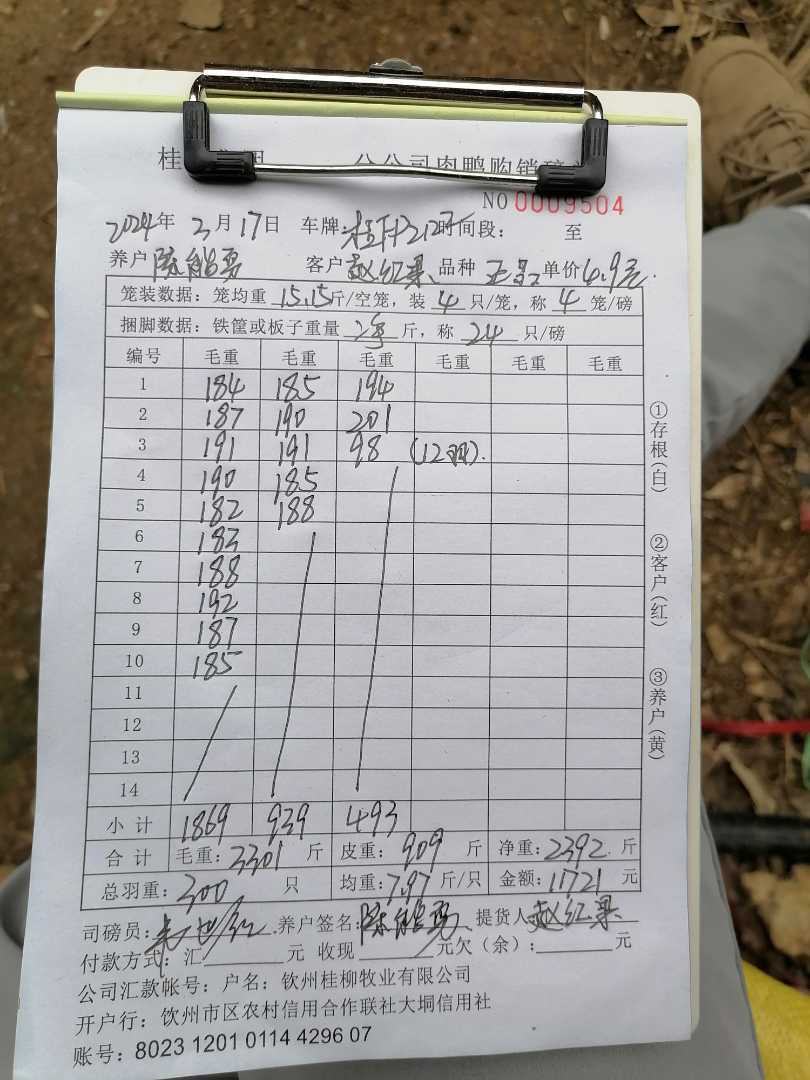 桂 公司肉鸭购销磅
NO 0009504
2024年 2月17日 车牌: 时间段: 至
养户 陈能勇 客户 赵红果 品种 单价6.9元.
笼装数据: 笼均重 15.15斤/空笼, 装 4 只/笼, 称 4 笼/磅
捆脚数据: 铁筐或板子重量 斤, 称 24 只/磅
编号 毛重 毛重 毛重 毛重 毛重 毛重
1 184 185 194
2 187 190 201
3 191 191 98 (12羽).
4 190 185
5 182 188
6 183
7 188
8 192
9 187
10 185
11
12
13
14
小计 1869 939 493
合计 毛重: 3301 斤 皮重: 909 斤 净重: 2392 斤
总羽重: 300 只 均重: 7.97 斤/只 金额: 11721 元
司磅员: 养户签名: 陈能勇 提货人 赵红果
付款方式: 汇 元 收现 元欠(余): 元
公司汇款帐号: 户名: 钦州桂柳牧业有限公司
开户行: 钦州市区农村信用合作联社大垌信用社
账号: 8023 1201 0114 4296 07
①存根(白)
②客户(红)
③养户(黄)